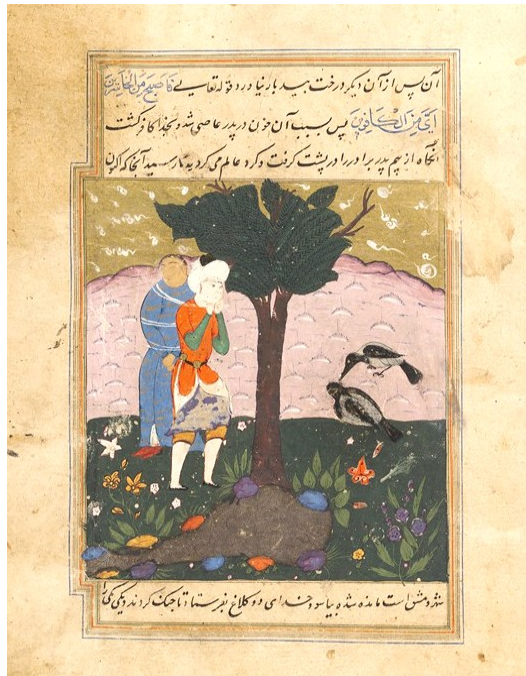 آن پس از آن دیگر درخت مید بار نیاورد قوله تعالی فاصبح من الخاسرین
ای من الکافرین پس بسبب آن خون در پدر عاصی شد و بخدا کافر گشت
آنگاه از بیم پدر برادر را در پشت گرفت و گرد عالم می گردید تا رسید آنجا که اکنون
شهر دمشق است مانده شده بیاسود خدای دو کلاغ بفرستاد تا جنک کردند و یکی یکی را